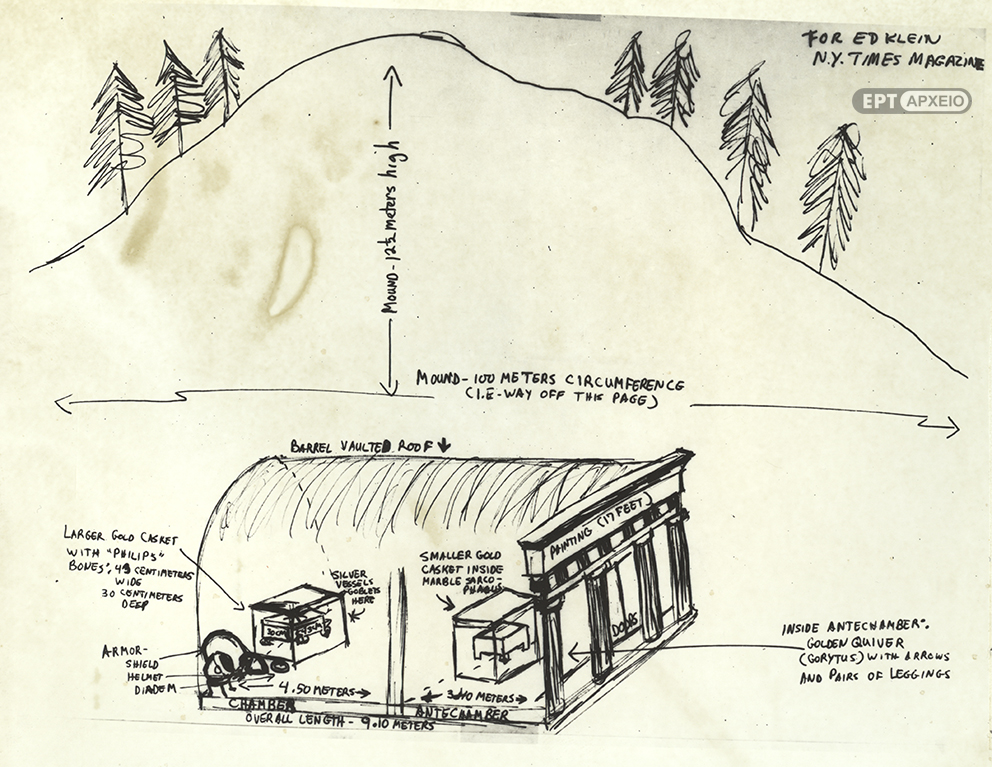 FOR ED KLEIN
N.Y. TIMES MAGAZINE
ΕΡΤ ΑΡΧΕΙΟ
MOUND-12½ meters high
MOUND-100 METERS CIRCUMFERENCE
(I.E-WAY OFF THIS PAGE)
BARREL VAULTED ROOF
PAINTING (17 FEET)
LARGER GOLD CASKET
WITH "PHILIPS"
BONES", 43 CENTIMETERS
WIDE
30 CENTIMETERS
DEEP
SILVER
VESSELS
GOBLETS
HERE
SMALLER GOLD
CASKET INSIDE
MARBLE SARCO-
PHAGUS
DOORS
INSIDE ANTECHAMBER:
GOLDEN QUIVER
(GORYTUS) WITH ARROWS
AND PAIRS OF LEGGINGS
ARMOR-
SHIELD
HELMET
DIADEM
4.50 METERS
3.40 METERS
CHAMBER
ANTECHAMBER
OVERALL LENGTH - 9.10 METERS